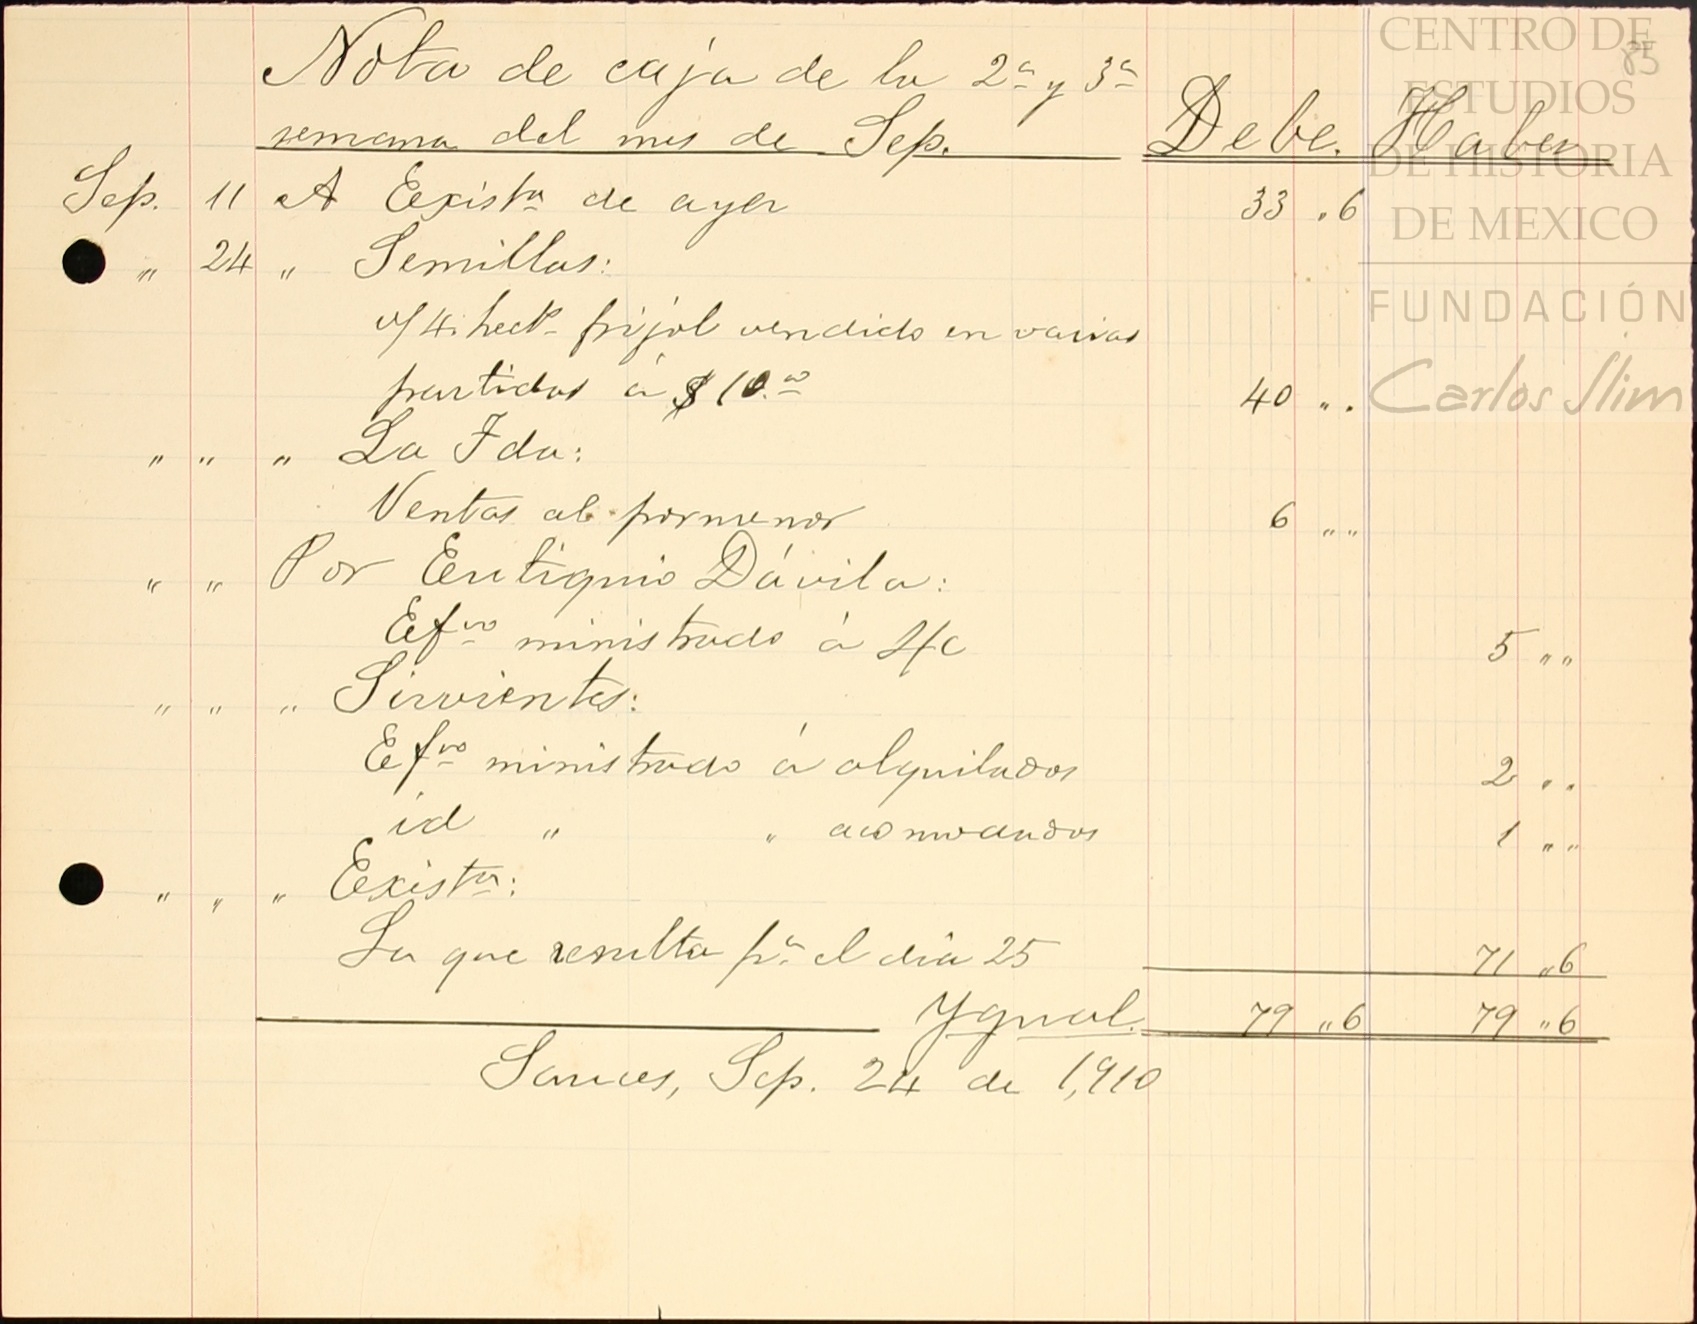 CENTRO DE
ESTUDIOS
DE HISTORIA
DE MEXICO
FUNDACIÓN
Carlos Slim
85
Nota de caja de la 2ª y 3ª
semana del mes de Sep. Debe. Haber
Sep. 11 A Existª de ayer 33 „6
„ 24 „ Semillas:
v/ 4. hect. frijol vendido en varias
partidas á $10.00 40 „.
„ „ „ La Fda:
Ventas al pormenor 6 „„
„ „ Por Eutiquio Dávila:
Efvo ministrado á
5 „„
„ „ „ Sirvientes:
Efvo ministrado á alquilados 2 „„
id „ „ acomodados 1 „„
„ „ „ Existª:
La que resulta pª el dia 25 71 „6
Ygual. 79 „6 79 „6
Sauces, Sep. 24 de 1,910